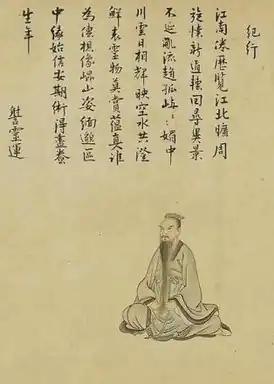 紀行
江南倦歷覽江北曠周
旋懷新道轉迥尋異景
不延亂流趨孤嶼〻〻媚中
川雲日相輝映空水共澄
鮮表靈物莫賞蘊真誰
為傳想像崐山姿緬邈區
中緣始信安期術得盡養
生年
謝靈運